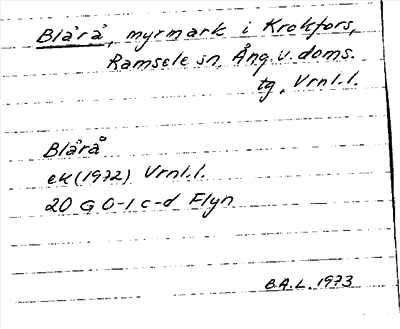 Blårå, myrmark i Krokfors,
Ramsele sn, Ång. v. doms.
tg, Vrnl.l.
Blårå
ek(1972) Vrnl.l.
20 G 0-1 c-d Flyn
B.A.L. 1973